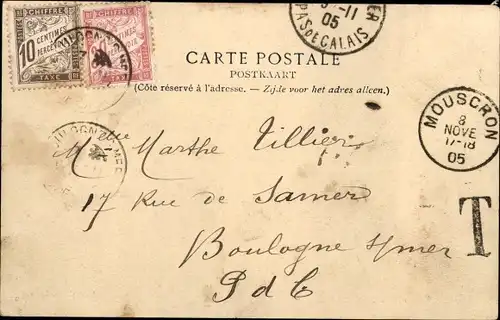 CHIFFRE
10
CENTIMES
À PERCEVOIR
TAXE
CHIFFRE
TAXE
BOULOGNE-S-MER
9-11
05
PAS DE CALAIS
CARTE POSTALE
POSTKAART
(Côte réservé à l'adresse. — Zijde voor het adres alleen.)
MOUSCRON
8
NOVE
17-18
05
Mlle Marthe Tillier
17 Rue de Samer
Boulogne s/mer
P d C
T